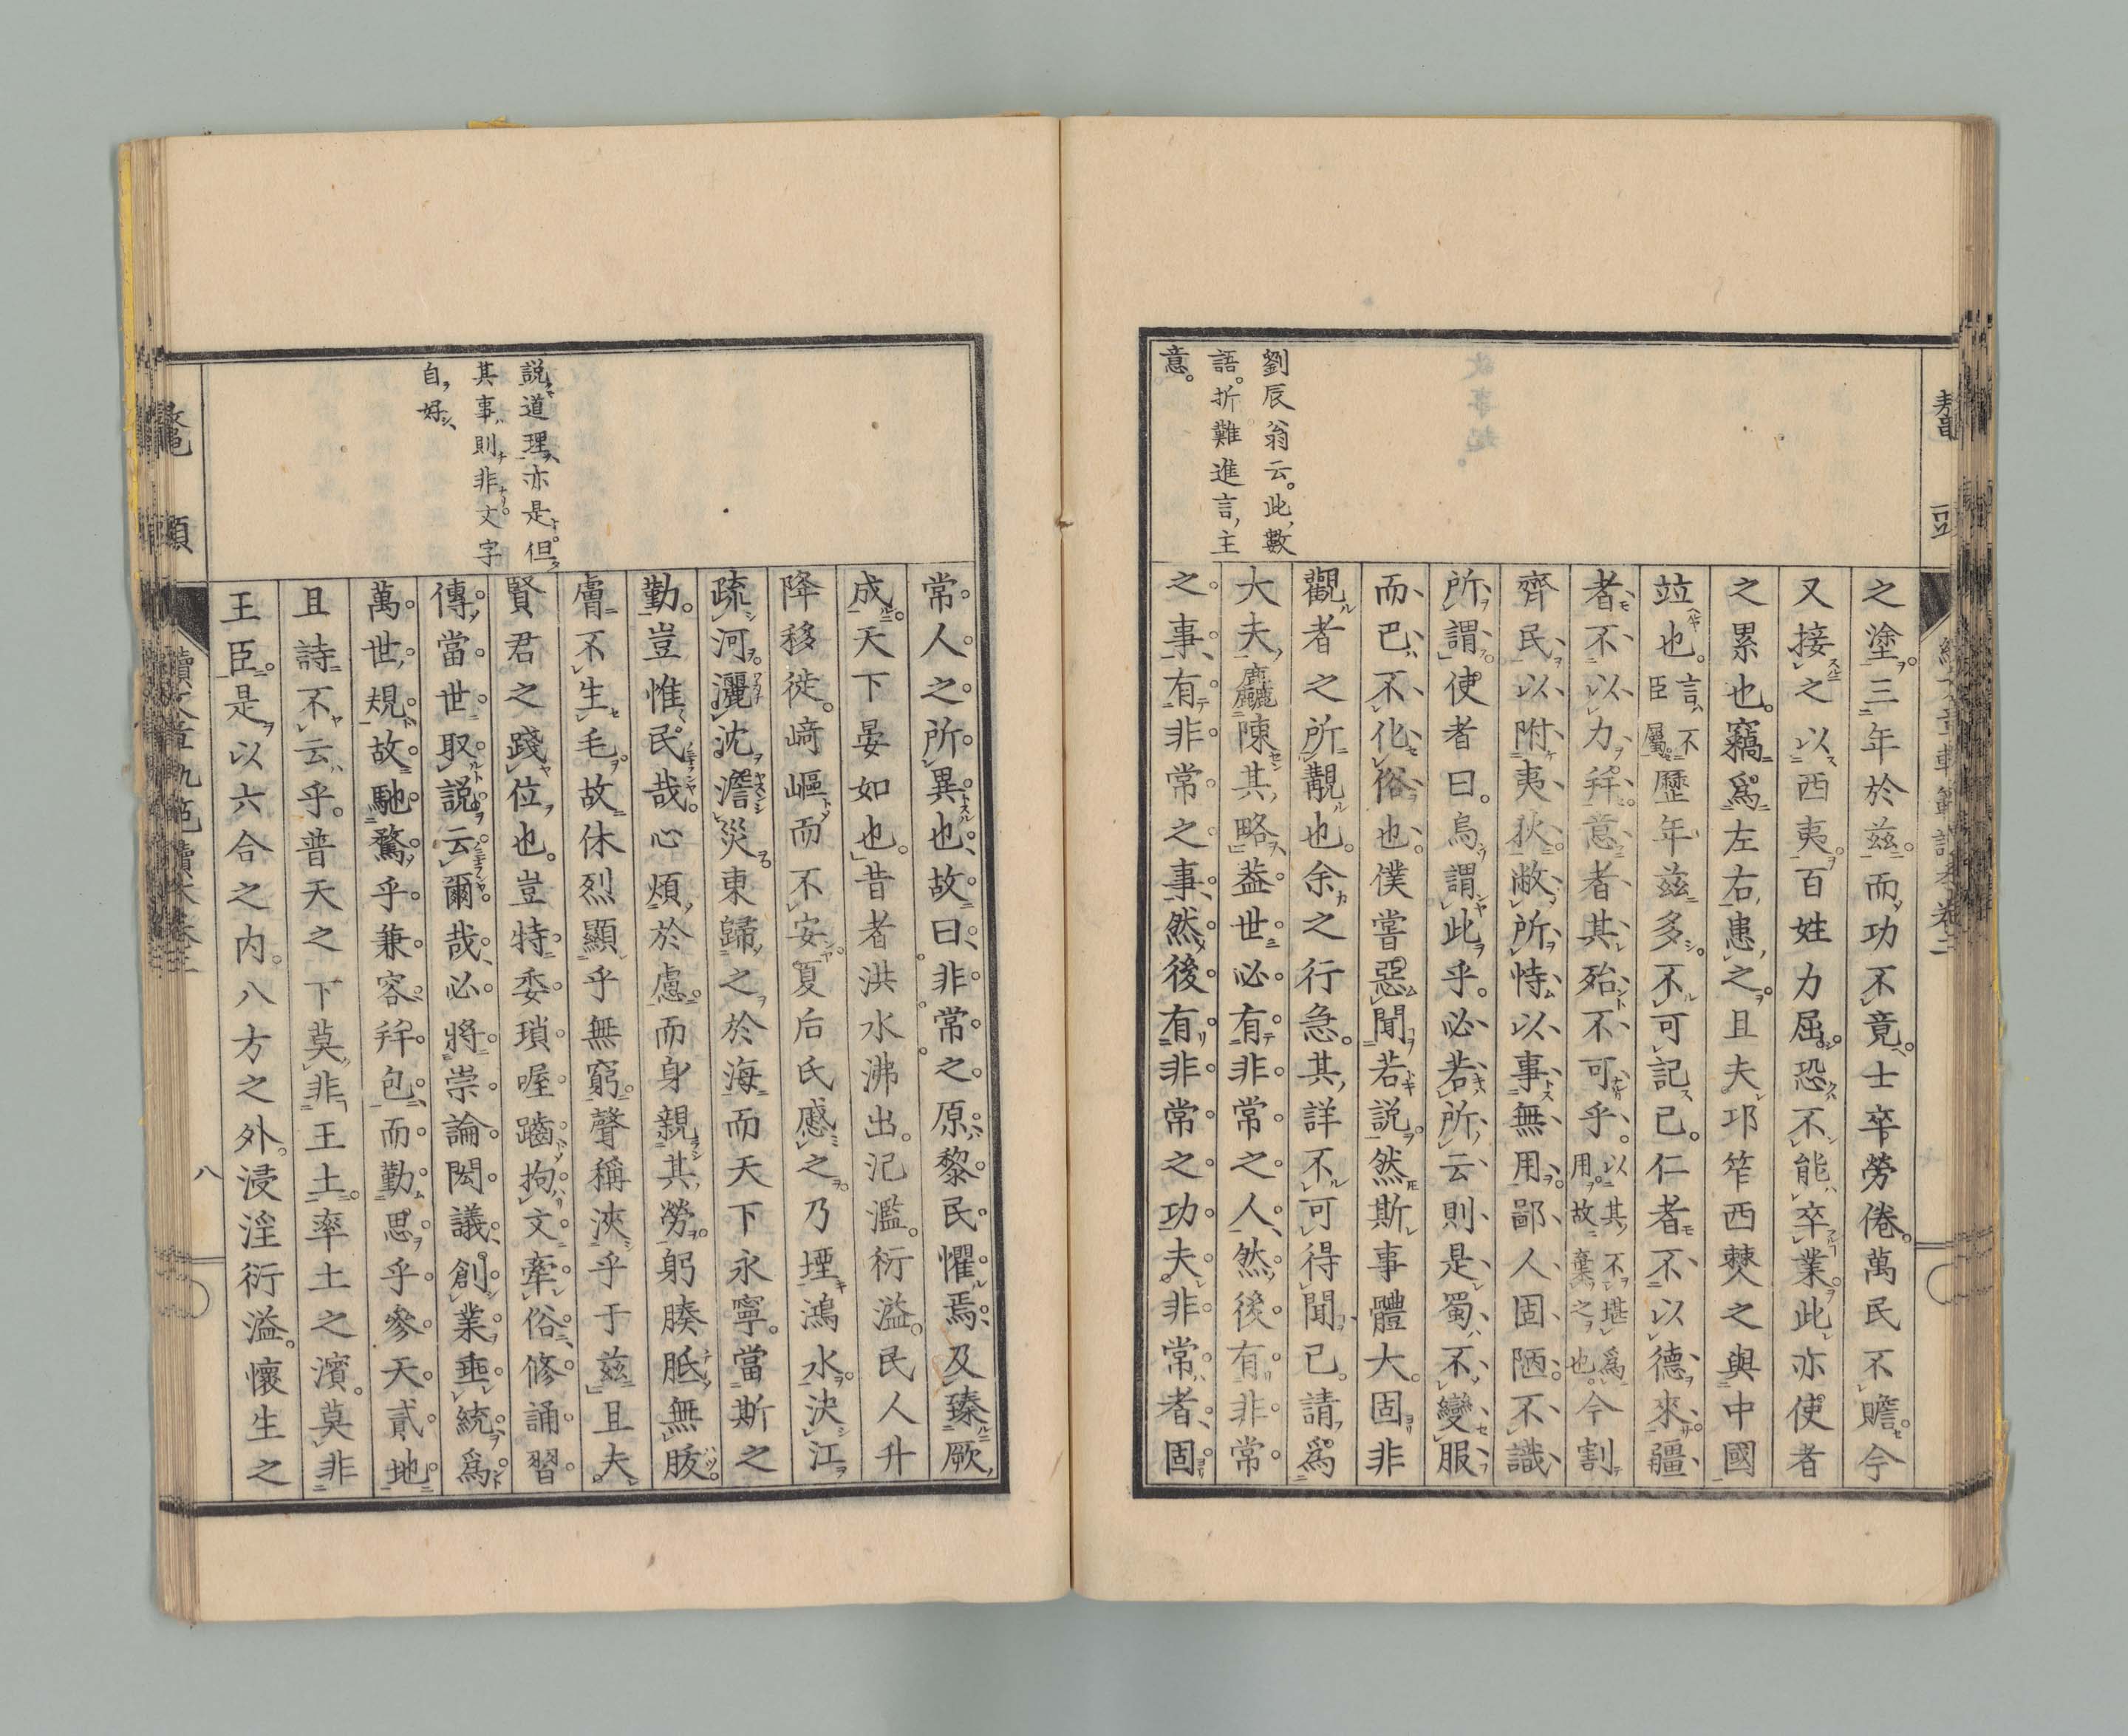 鼇頭
續文章軌範讀本卷二
劉辰翁云。此數
語。折難進言主
意。
之塗。三年於茲。而功不竟。士卒勞倦。萬民不贍。今
又接之以西夷。百姓力屈。恐不能卒業。此亦使者
之累也。竊爲左右患之。且夫邛筰西僰之與中國
竝也。言不臣屬歷年茲多。不可記已。仁者不以德來。疆
者不以力幷。意者其殆不可乎。以其不堪爲用故棄之也。今割
齊民以附夷狄。敝所恃以事無用。鄙人固陋。不識
所謂。使者曰。烏謂此乎。必若所云則是蜀不變服
而巴不化俗也。僕嘗惡聞若説。然斯事體大。固非
觀者之所覯也。余之行急。其詳不可得聞已。請爲
大夫麤陳其略。葢世必有非常之人。然後有非常
之事。有非常之事。然後有非常之功。夫非常者。固
説道理亦是。但
其事則非。文字
自好
常人之所異也。故曰。非常之原。黎民懼焉。及臻厥
成。天下晏如也。昔者洪水沸出。氾濫衍溢。民人升
降移徙。﨑嶇而不安。夏后氏慼之。乃堙鴻水。決江
疏河。灑沈澹災。東歸之於海。而天下永寧。當斯之
勤。豈惟民哉。心煩於慮。而身親其勞。躬腠胝無胈。
膚不生毛。故休烈顯乎無窮。聲稱浹乎于茲。且夫
賢君之踐位也。豈特委瑣喔齱。拘文牽俗。修誦習
傳。當世取説云爾哉。必將崇論閎議。創業垂統。爲
萬世規。故馳騖乎兼容幷包。而勤思乎參天貳地。
且詩不云乎。普天之下莫非王土。率土之濱。莫非
王臣。是以六合之内。八方之外。浸淫衍溢。懷生之
鼇頭
續文章軌範讀本卷二
八